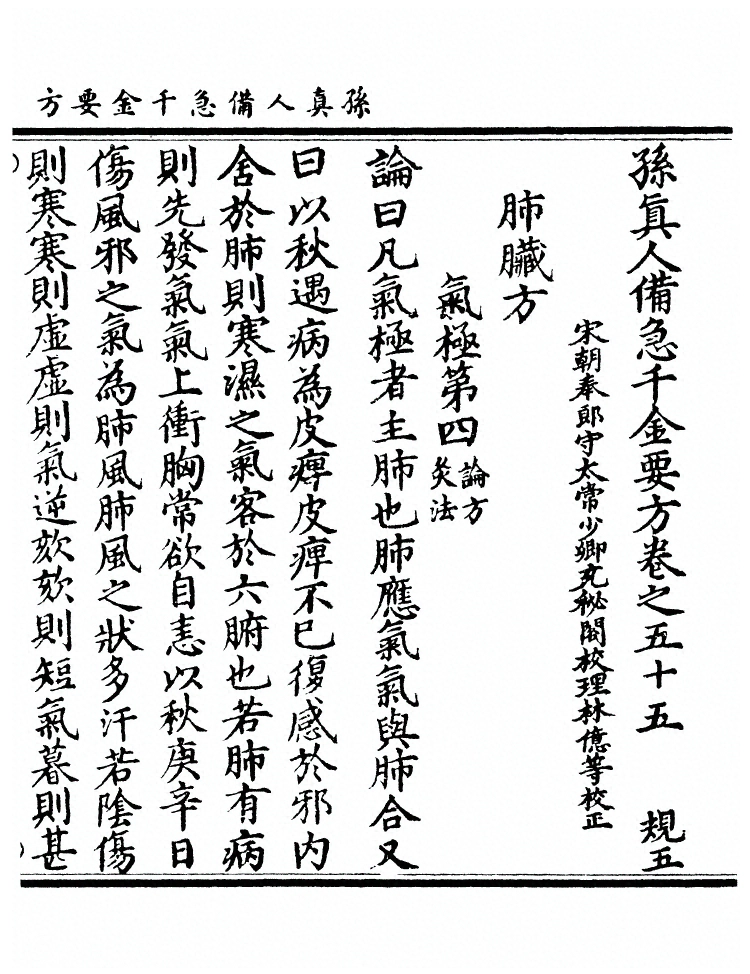 孫真人備急千金要方
孫眞人備急千金要方卷之五十五　規五
宋朝奉郎守太常少卿充秘閣校理林億等校正
肺臟方
氣極第四 論方
灸法
論曰凡氣極者主肺也肺應氣氣與肺合又
曰以秋遇病為皮痺皮痺不已復感於邪內
舍於肺則寒濕之氣客於六腑也若肺有病
則先發氣氣上衝胸常欲自恚以秋庚辛日
傷風邪之氣為肺風肺風之狀多汗若陰傷
則寒寒則虛虛則氣逆欬欬則短氣暮則甚